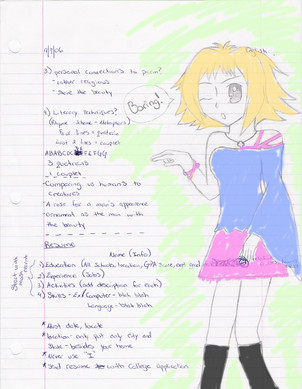 9/7/06
3) personal connection/s to poem?
- rather religious
- share the beauty
4) Literary techniques?
(Rhyme scheme - Metaphors)
1st 12 lines = quatrains
last 2 lines = couplet
ABABCDCDEFEFGG
3 quatrains
1 couplet
- Comparing us humans to
creatures
- A rose for a man's appearance
- ornamed as the man with
the beauty
Boring!
Resume
Name (Info)
1) Education (All Schools, location, GPA
2) Experience (Jobs)
3) Activities (add description for each)
4) Skills - Ex/ Computer - blah blah
Language - blah blah
Start with most recent
* Must date, locate
* location - only put only city and
State - besides your home
* Never use "I"
* Send resume with college application